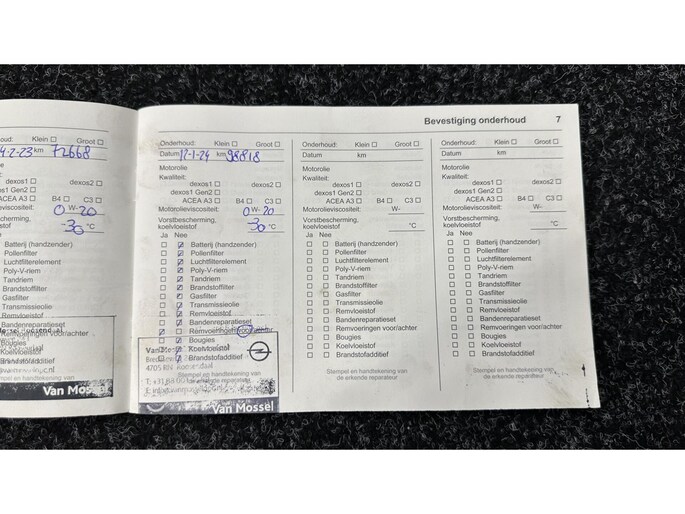 Bevestiging onderhoud 7
oud: Klein Groot
4-2-23 km 72668
lie
dexos1 dexos2
os1 Gen2
ACEA A3 B4 C3
viscositeit: 0 W- 20
rming,
-30 °C
Batterij (handzender)
Pollenfilter
Luchtfilterelement
Poly-V-riem
Tandriem
Brandstoffilter
Gasfilter
Transmissieolie
Remvloeistof
Bandenreparatieset
Remvoeringen voor/achter
Bougies
Koelvloeistof
Brandstofadditief
Stempel en handtekening van
Van Mossel
Onderhoud: Klein Groot
Datum 12-1-24 km 98818
Motorolie
Kwaliteit:
dexos1 dexos2
dexos1 Gen2
ACEA A3 B4 C3
Motorolieviscositeit: 0 W- 20
Vorstbescherming,
koelvloeistof -30 °C
Ja Nee
Batterij (handzender)
Pollenfilter
Luchtfilterelement
Poly-V-riem
Tandriem
Brandstoffilter
Gasfilter
Transmissieolie
Remvloeistof
Bandenreparatieset
Remvoeringen voor/achter
Bougies
Koelvloeistof
Brandstofadditief
4705 RN
Stempel en handtekening van
Van Mossel
Onderhoud: Klein Groot
Datum km
Motorolie
Kwaliteit:
dexos1 dexos2
dexos1 Gen2
ACEA A3 B4 C3
Motorolieviscositeit: W-
Vorstbescherming,
koelvloeistof °C
Ja Nee
Batterij (handzender)
Pollenfilter
Luchtfilterelement
Poly-V-riem
Tandriem
Brandstoffilter
Gasfilter
Transmissieolie
Remvloeistof
Bandenreparatieset
Remvoeringen voor/achter
Bougies
Koelvloeistof
Brandstofadditief
Stempel en handtekening van
de erkende reparateur
Onderhoud: Klein Groot
Datum km
Motorolie
Kwaliteit:
dexos1 dexos2
dexos1 Gen2
ACEA A3 B4 C3
Motorolieviscositeit: W-
Vorstbescherming,
koelvloeistof °C
Ja Nee
Batterij (handzender)
Pollenfilter
Luchtfilterelement
Poly-V-riem
Tandriem
Brandstoffilter
Gasfilter
Transmissieolie
Remvloeistof
Bandenreparatieset
Remvoeringen voor/achter
Bougies
Koelvloeistof
Brandstofadditief
Stempel en handtekening van
de erkende reparateur